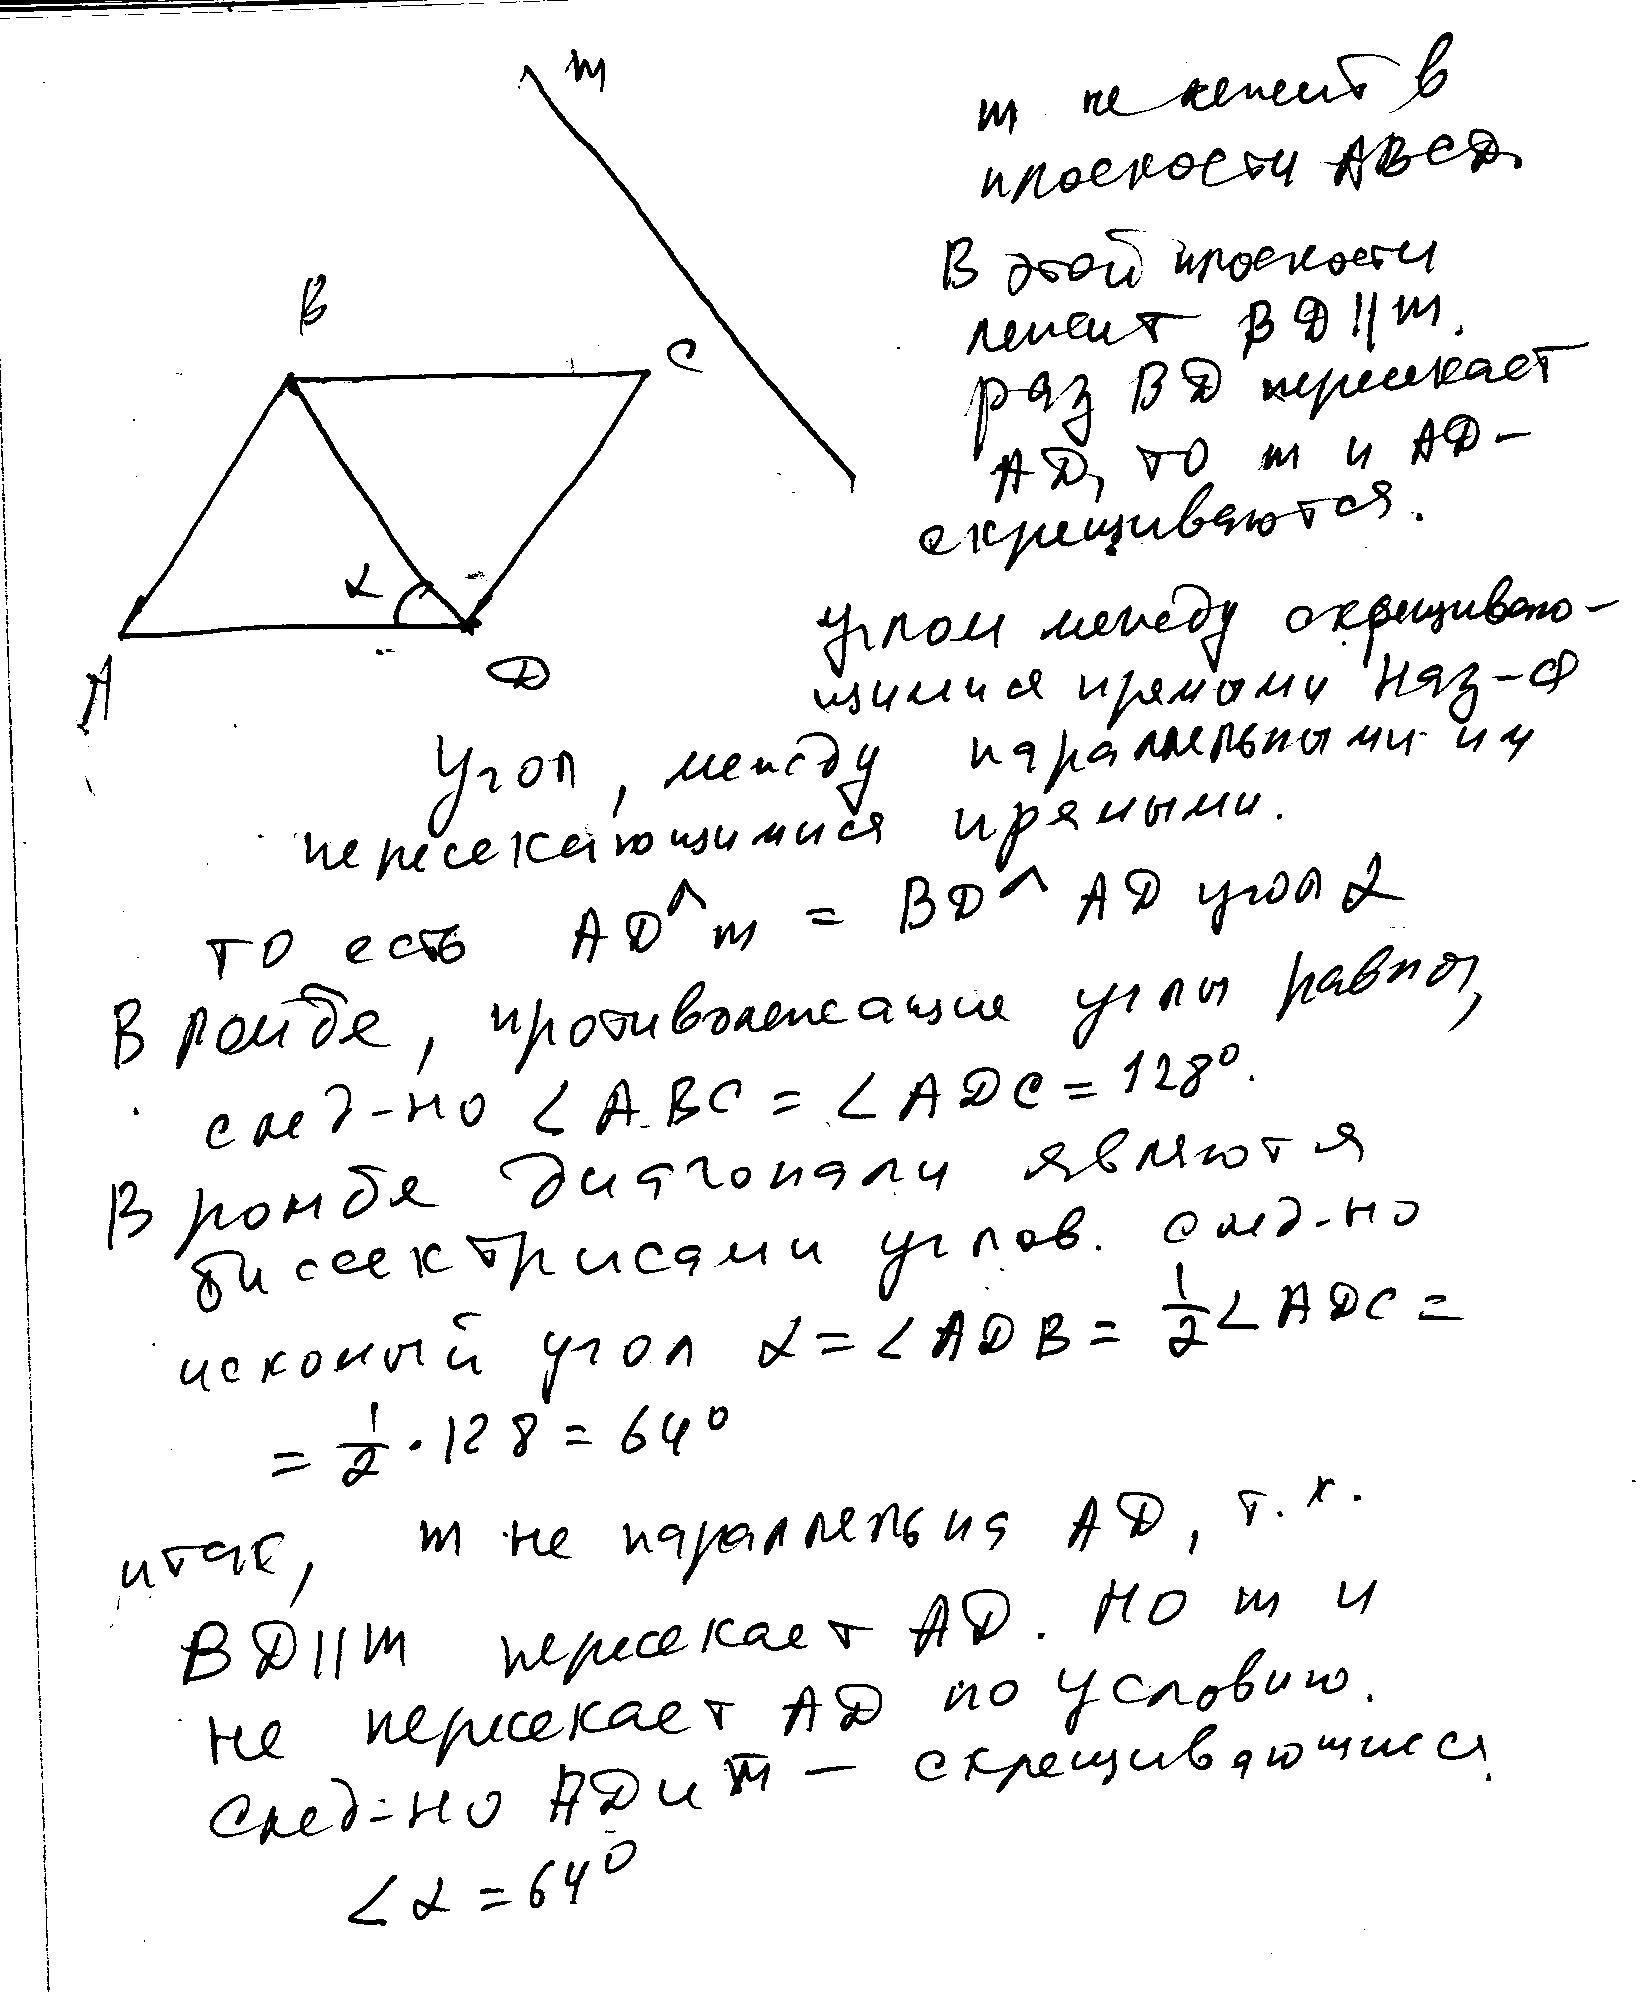 m
B
C
α
A
D
m не лежит в
плоскости ABCD.
В этой плоскости
лежит BD || m.
раз BD пересекает
AD, то m и AD –
скрещиваются.
углом между скрещиваю-
щимися прямыми наз-ся
угол, между параллельными им
пересекающимися прямыми.
то есть AD^m = BD^AD угол α
В ромбе, противолежащие углы равны,
след-но ∠ABC = ∠ADC = 128°.
В ромбе диагонали являются
биссектрисами углов. след-но
искомый угол α = ∠ADB = 1/2 ∠ADC =
= 1/2 · 128 = 64°
итак, m не параллельна AD, т.к.
BD || m пересекает AD. Но m и
не пересекает AD по условию.
След-но AD и m – скрещивающиеся.
∠α = 64°